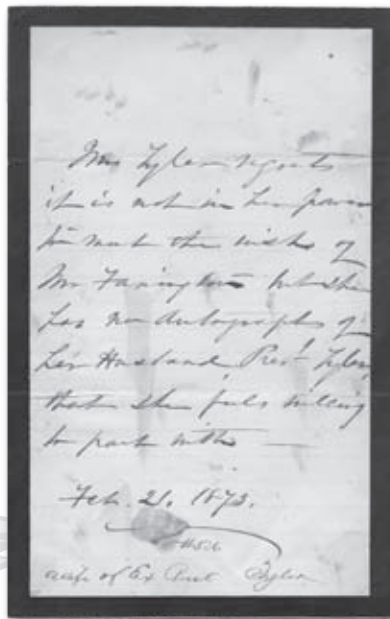 Mrs Tyler regrets
it is not in her power
to meet the wish of
Mr Farington but she
has no Autographs of
her Husband Prest. Tyler,
that she feels willing
to part with —
Feb. 21. 1873.
wife of Ex Prest Tyler